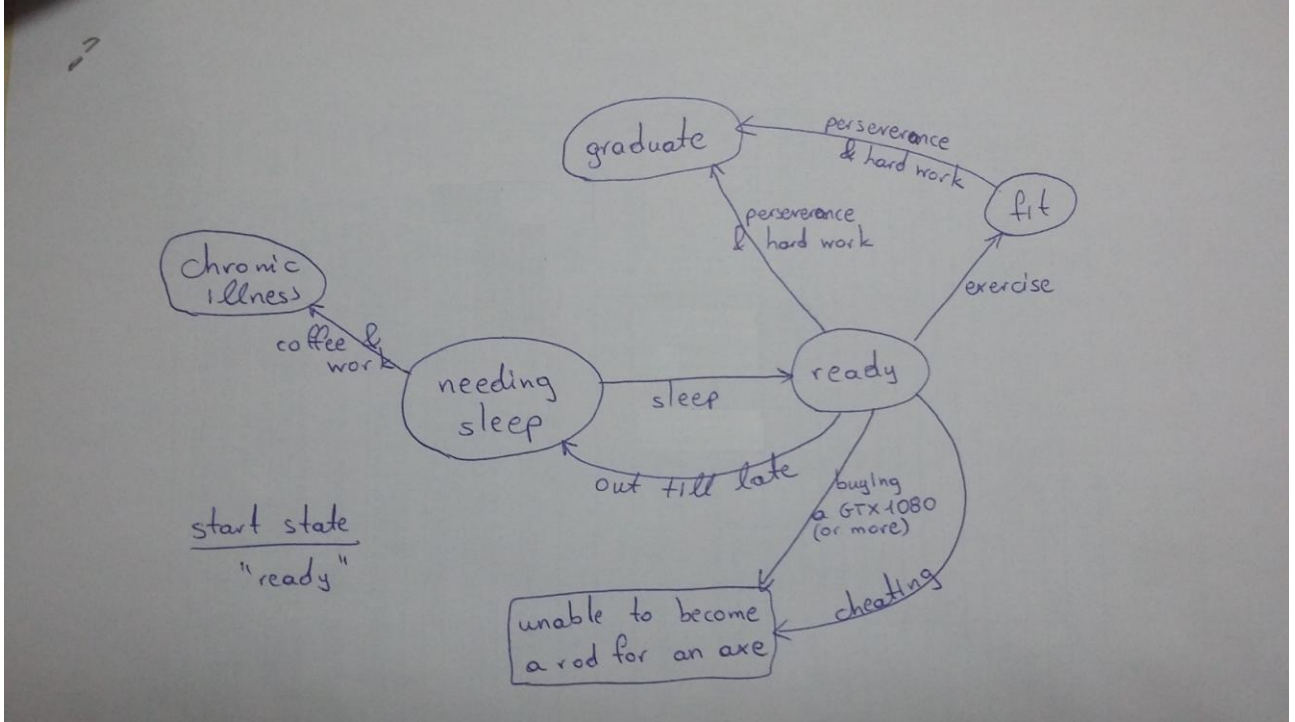 ?
graduate
perseverance
& hard work
fit
perseverance
& hard work
exercise
chronic
illness
coffee &
work
needing
sleep
sleep
ready
out till late
buying
a GTX 1080
(or more)
cheating
start state
"ready"
unable to become
a rod for an axe